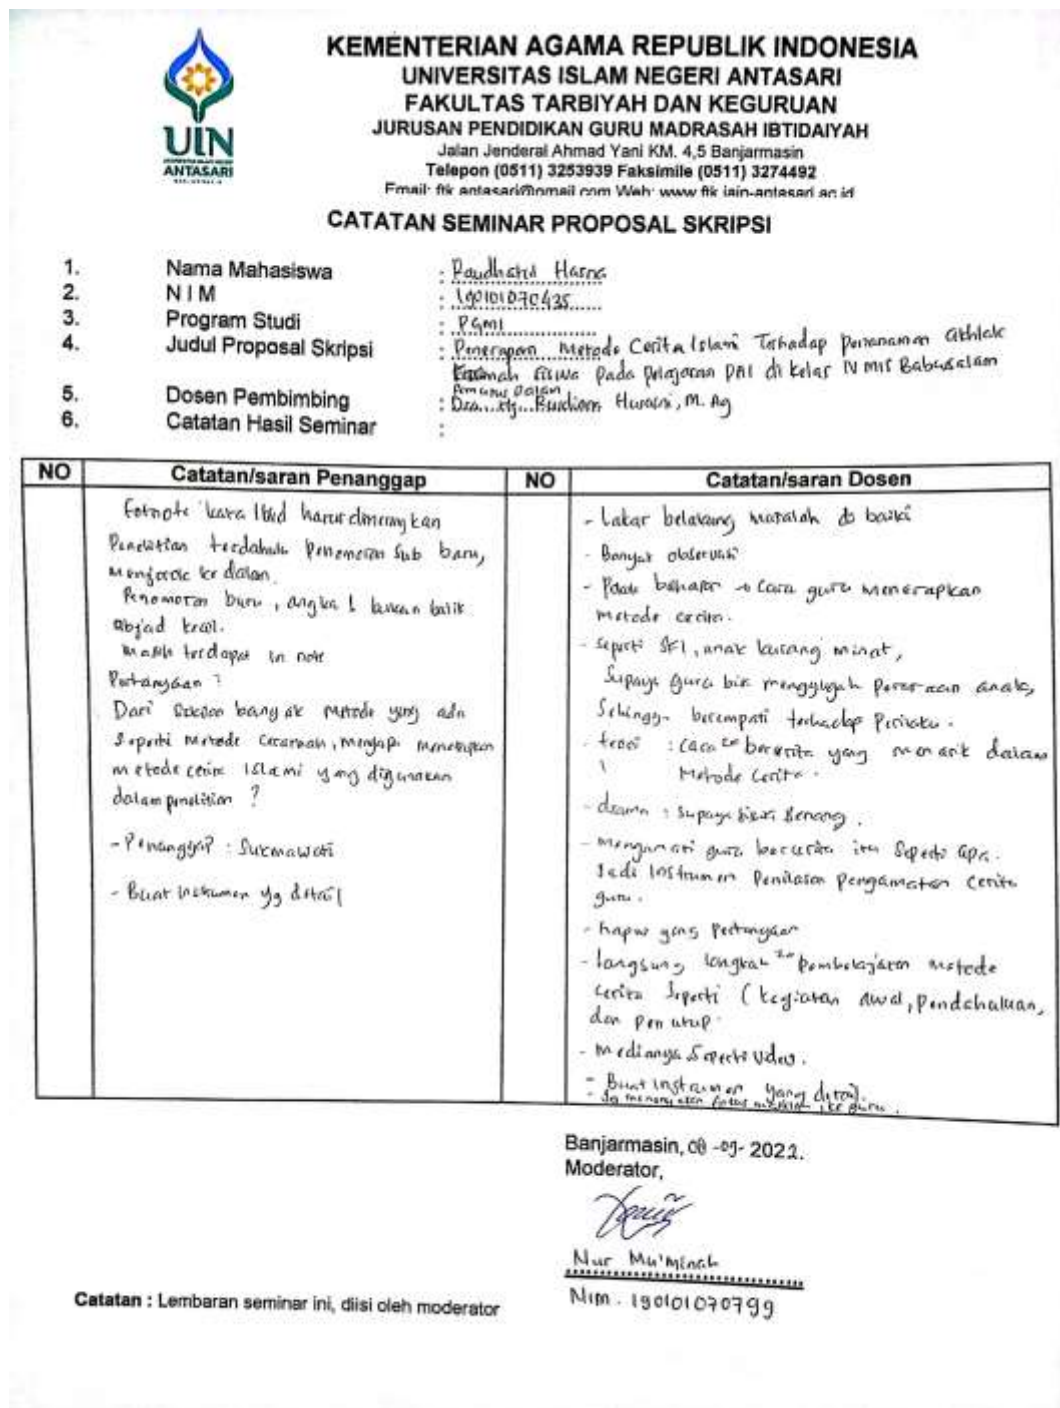 UIN
UNIVERSITAS ISLAM NEGERI
ANTASARI
KEMENTERIAN AGAMA REPUBLIK INDONESIA
UNIVERSITAS ISLAM NEGERI ANTASARI
FAKULTAS TARBIYAH DAN KEGURUAN
JURUSAN PENDIDIKAN GURU MADRASAH IBTIDAIYAH
Jalan Jenderal Ahmad Yani KM. 4,5 Banjarmasin
Telepon (0511) 3253939 Faksimile (0511) 3274492
Email: ftk.antasari@gmail.com Web: www.ftk.iain-antasari.ac.id
CATATAN SEMINAR PROPOSAL SKRIPSI
1. Nama Mahasiswa : Raudhatul Hasna
2. N I M : 190101070435
3. Program Studi : PGMI
4. Judul Proposal Skripsi : Penerapan Metode Cerita Islami Terhadap penanaman akhlak
Karimah siswa pada pelajaran PAI di kelas IV MIS Babusalam
Pemurus Dalam
5. Dosen Pembimbing : Dra. Hj. Husaini, M. Ag
6. Catatan Hasil Seminar :
NO Catatan/saran Penanggap
Fotnote kata Ibid harus dimiringkan
Penelitian terdahulu Penomoran Sub baru,
Menjorok ke dalam.
Penomoran baru, angka 1 bukan balik
abjad kecil.
Masih terdapat in note
Pertanyaan ?
Dari sekian banyak metode yang ada
Seperti Metode Ceramah, mengapa menetapkan
metode cerita Islami yang digunakan
dalam penelitian ?
- Penanggap : Sukmawati
- Buat instrumen yg detail
NO Catatan/saran Dosen
- Latar belakang masalah di baiki
- Banyak observasi
- Pada bahasan → Cara guru menerapkan
metode cerita.
- Seperti SKI, anak kurang minat,
Supaya guru bisa menggugah perasaan anak,
Sehingga berempati terhadap Perilaku.
- teori : cara bercerita yang menarik dalam
Metode Cerita.
- drama : Supaya Siswa Senang.
- mengamati guru bercerita itu Seperti apa.
Jadi Instrumen Penilaian Pengamatan Cerita
guru.
- hapus yang Pertanyaan
- langsung langkah 2x pembelajaran metode
cerita Seperti (kegiatan awal, Pendahuluan,
dan Penutup
- Medianya Seperti Video.
- Buat instrumen yang detail.
ke guru.
Banjarmasin, 08 -09- 2022.
Moderator,
Nur Mu'minah
Nim. 190101070799
Catatan : Lembaran seminar ini, diisi oleh moderator